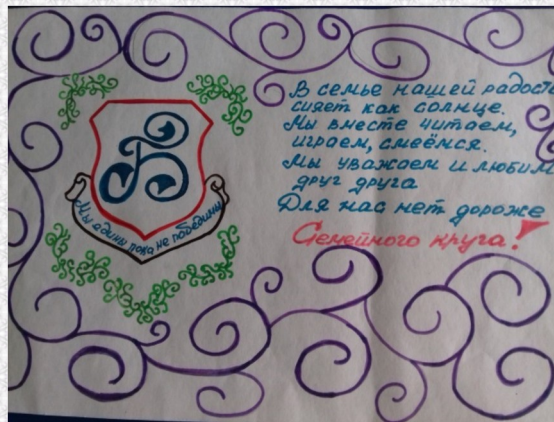 Б
Мы едины пока не победимы
В семье нашей радость
сияет как солнце.
Мы вместе читаем,
играем, смеёмся.
Мы уважаем и любим
друг друга
Для нас нет дороже
Семейного круга!